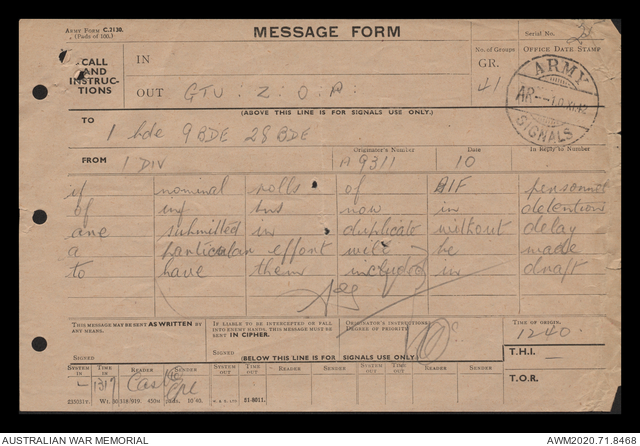 ARMY FORM C.2130.
(Pads of 100.)
MESSAGE FORM
Serial No.
CALL
AND
INSTRUC-
TIONS
IN
OUT GTU : Z : O : A :
No. of Groups
GR.
41
OFFICE DATE STAMP
ARMY
SIGNALS
(ABOVE THIS LINE IS FOR SIGNALS USE ONLY.)
TO
1 bde 9 BDE 28 BDE
FROM 1 DIV
Originator's Number
A9311
Date
10
In Reply to Number
if nominal rolls of AIF personnel
of now in detentions
are submitted in duplicate without delay
a particular effort will be made
to have them included in draft
THIS MESSAGE MAY BE SENT AS WRITTEN BY
ANY MEANS.
SIGNED
IF LIABLE TO BE INTERCEPTED OR FALL
INTO ENEMY HANDS, THIS MESSAGE MUST BE
SENT IN CIPHER.
SIGNED
ORIGINATOR'S INSTRUCTIONS
DEGREE OF PRIORITY
TIME OF ORIGIN.
1240
(BELOW THIS LINE IS FOR SIGNALS USE ONLY.)
T.H.I. —
SYSTEM IN
TIME IN
READER
SENDER
SYSTEM OUT
TIME OUT
READER
SENDER
SYSTEM OUT
TIME OUT
READER
SENDER
1317
T.O.R.
AUSTRALIAN WAR MEMORIAL
AWM2020.71.8468